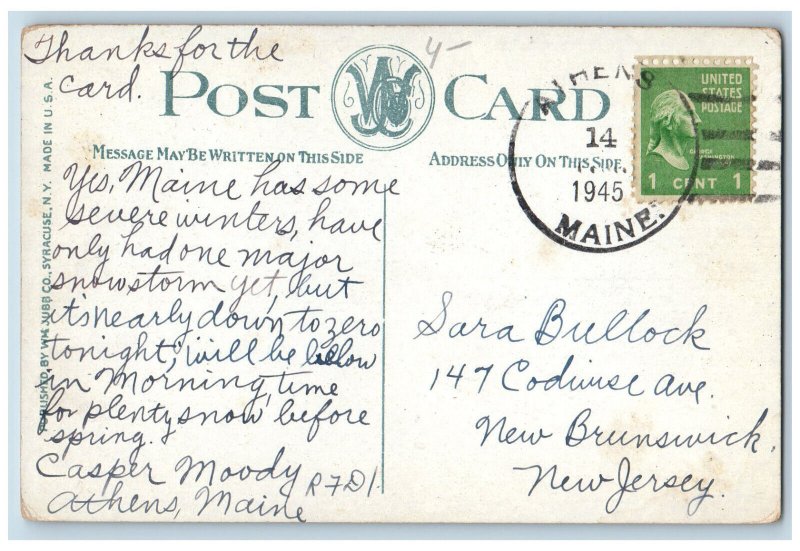 Thanks for the
card.
4-
POST CARD
MESSAGE MAY BE WRITTEN ON THIS SIDE
ADDRESS ONLY ON THIS SIDE
PUBLISHED BY WM. JUBB CO., SYRACUSE, N.Y. MADE IN U.S.A.
ATHENS
14
1945
MAINE.
UNITED
STATES
POSTAGE
GEORGE
WASHINGTON
1 CENT 1
Yes, Maine has some
severe winters, have
only had one major
snowstorm yet, but
it's nearly down to zero
tonight, will be below
in Morning, time
for plenty snow before
spring.
Casper Moody R7D1.
Athens, Maine
Sara Bullock
147 Ave.
New Brunswick,
New Jersey.